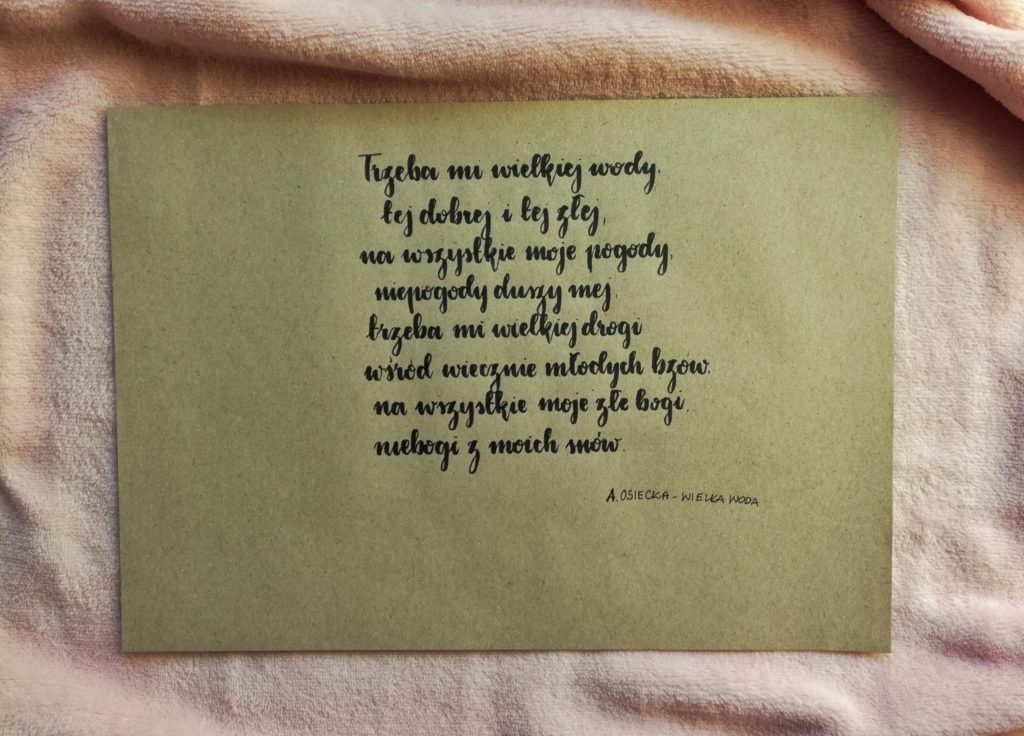 Trzeba mi wielkiej wody,
tej dobrej i tej złej,
na wszystkie moje pogody,
niepogody duszy mej,
trzeba mi wielkiej drogi
wśród wiecznie młodych bzów,
na wszystkie moje złe bogi,
niebogi z moich snów.
A. OSIECKA - WIELKA WODA